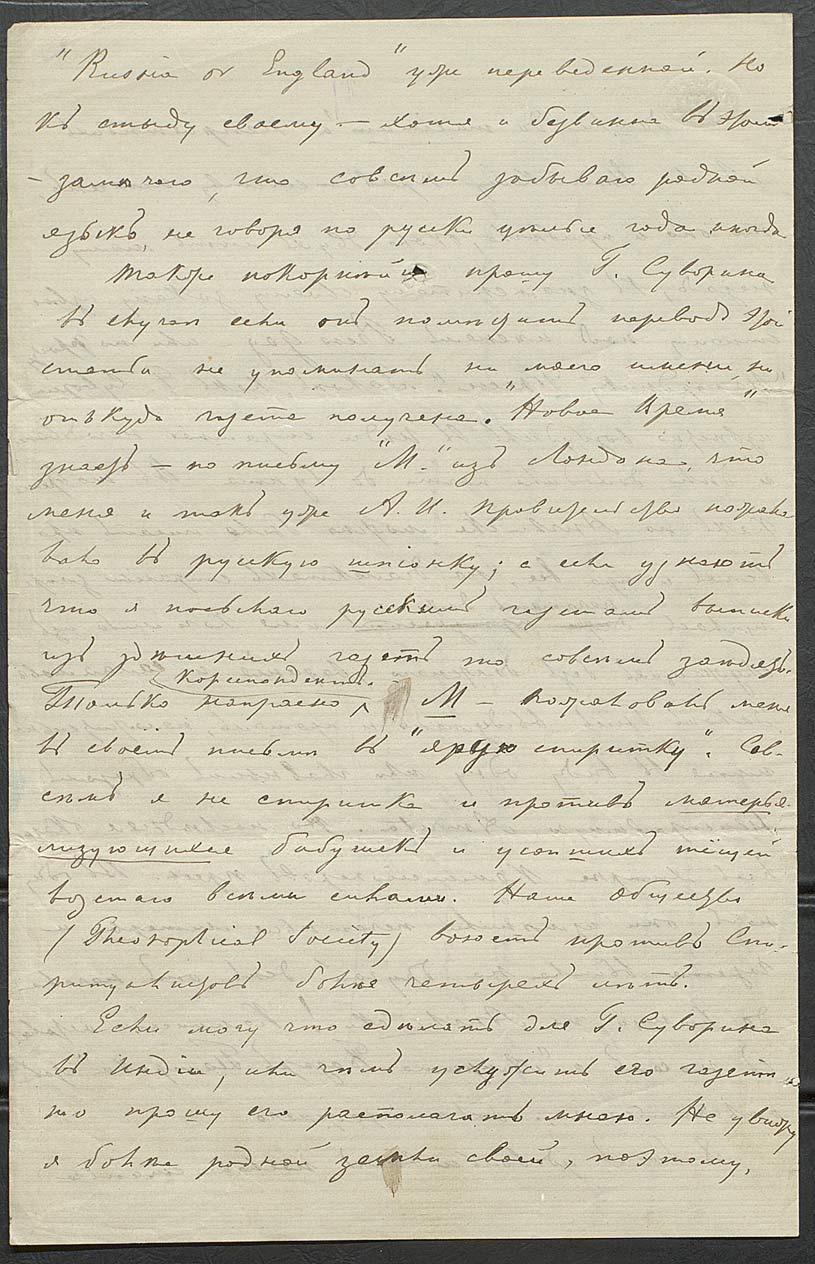 "Russia or England" уже переведенной. Но
къ стыду своему — хотя и безвинна въ этомъ
— замечаю, что совсѣмъ забываю родной
языкъ, не говоря по русски цѣлые года иногда
Также покорнѣйше прошу Г. Суворина
въ случаѣ если онъ помѣститъ переводъ этой
статьи не упоминать ни моего имени, ни
откуда газета получена. "Новое Время"
знаетъ — по письму "М." изъ Лондона, что
меня и такъ уже А. И. правительство пожало
вало въ русскую шпіонку; а если узнаютъ
что я посылаю русскимъ газетамъ выписки
изъ здѣшнихъ газетъ то совсѣмъ заѣдятъ.
Только напрасно Корреспондентъ. М — пожаловалъ меня
въ своемъ письмѣ въ "ярую спиритку". Сов-
сѣмъ я не спиритка и противъ матерья-
лизующихся бабушекъ и усопшихъ тёщей
возстаю всѣми силами. Наше Общество
(Theosophical Society) воюетъ противъ Спи-
ритуалистовъ болѣе четырехъ лѣтъ.
Если могу что сдѣлать для Г. Суворина
въ Индіи, или чѣмъ услужить его газетѣ
то прошу его располагать мною. Не увижу
я болѣе родной земли своей, поэтому,